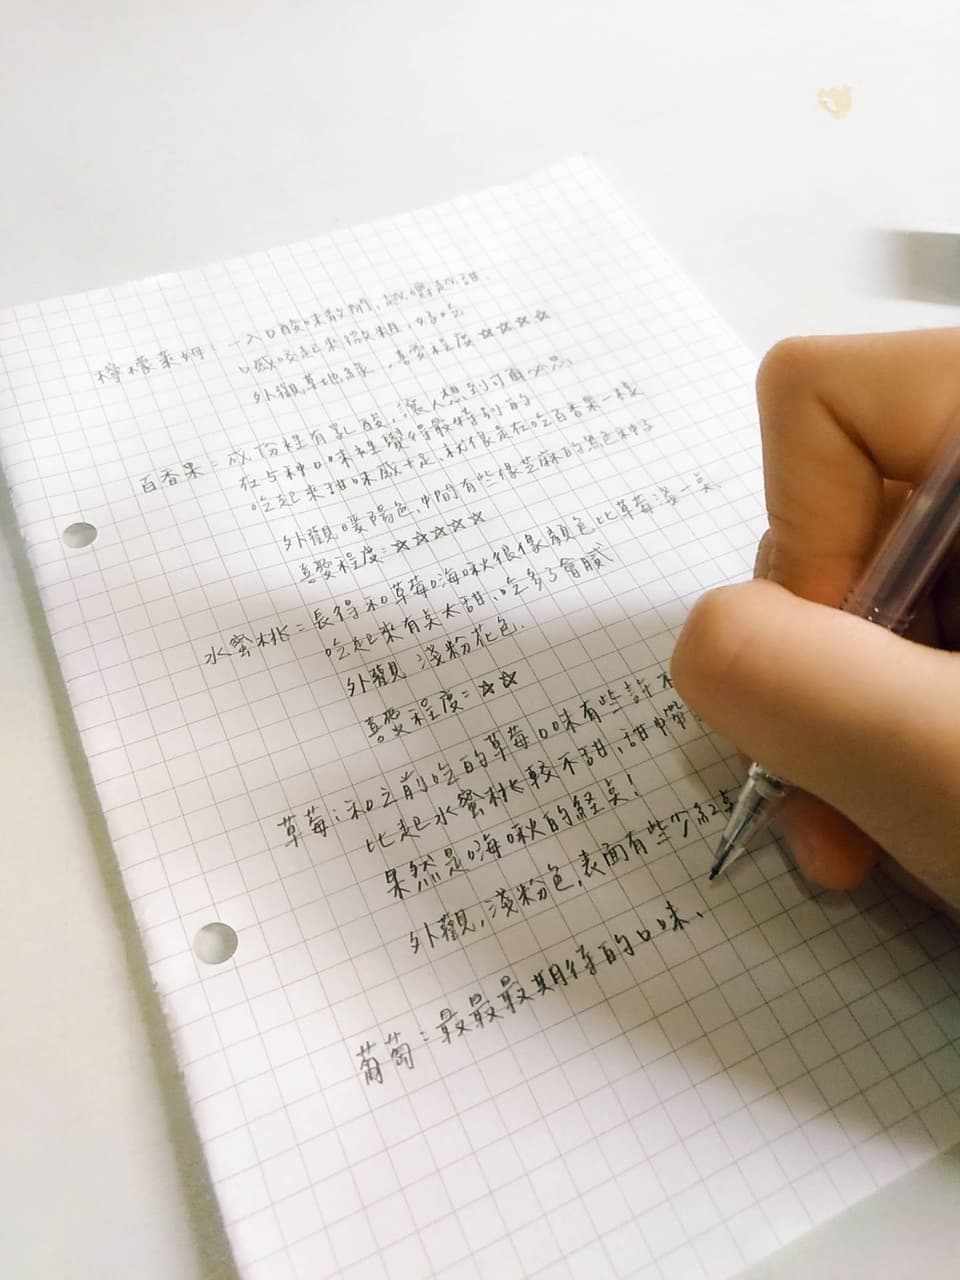 檸檬萊姆：一入口酸味散開，越嚼越甜
口感咬起來微粗，好吃
外觀草地綠，喜愛程度☆☆☆☆
百香果：成份裡有乳酸，讓人想到可爾必思
在5種口味裡覺得最特別的
吃起來甜味感十足，就很是在吃百香果一樣
外觀暖陽色，中間有些像芝麻的黑色种子
喜愛程度：☆☆☆☆☆
水蜜桃：長得和草莓嗨啾很像顏色比草莓淺一点
吃起來有点太甜，吃多了會膩
外觀淺粉花色.
喜愛程度：☆☆
草莓：和之前吃的草莓口味有些許不
比起水蜜桃較不甜，甜中帶
果然是嗨啾的経点！
外觀，淺粉色，表面有些少紅点
葡萄：最最最期待的口味、